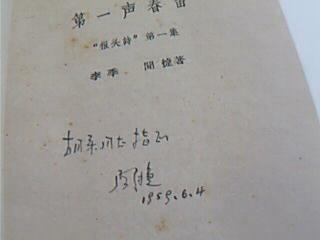 第一声春雷
“报头诗”第一集
李季 聞捷著
胡采同志指正
闻捷
1959.6.4